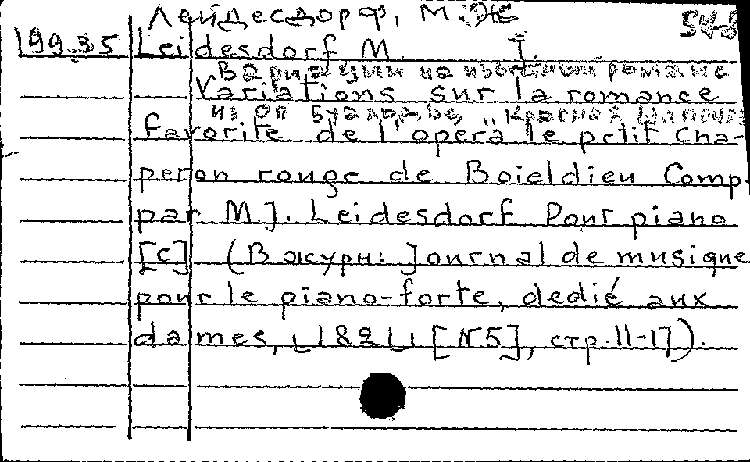 Лейдесдорф, М. Ж
199.35 Leidesdorf M. J.
Вариации на известный романс
Variations sur la romance
из оп Буальдье, "Красная Шапочка
favorite de l'opera le petit Cha-
peron rouge de Boieldieu Comp.
par M J. Leidesdorf Pour piano
[C] (В журн: Journal de musique
pour le piano-forte, dedié aux
dames, 182 [N5], стр. 11-17).